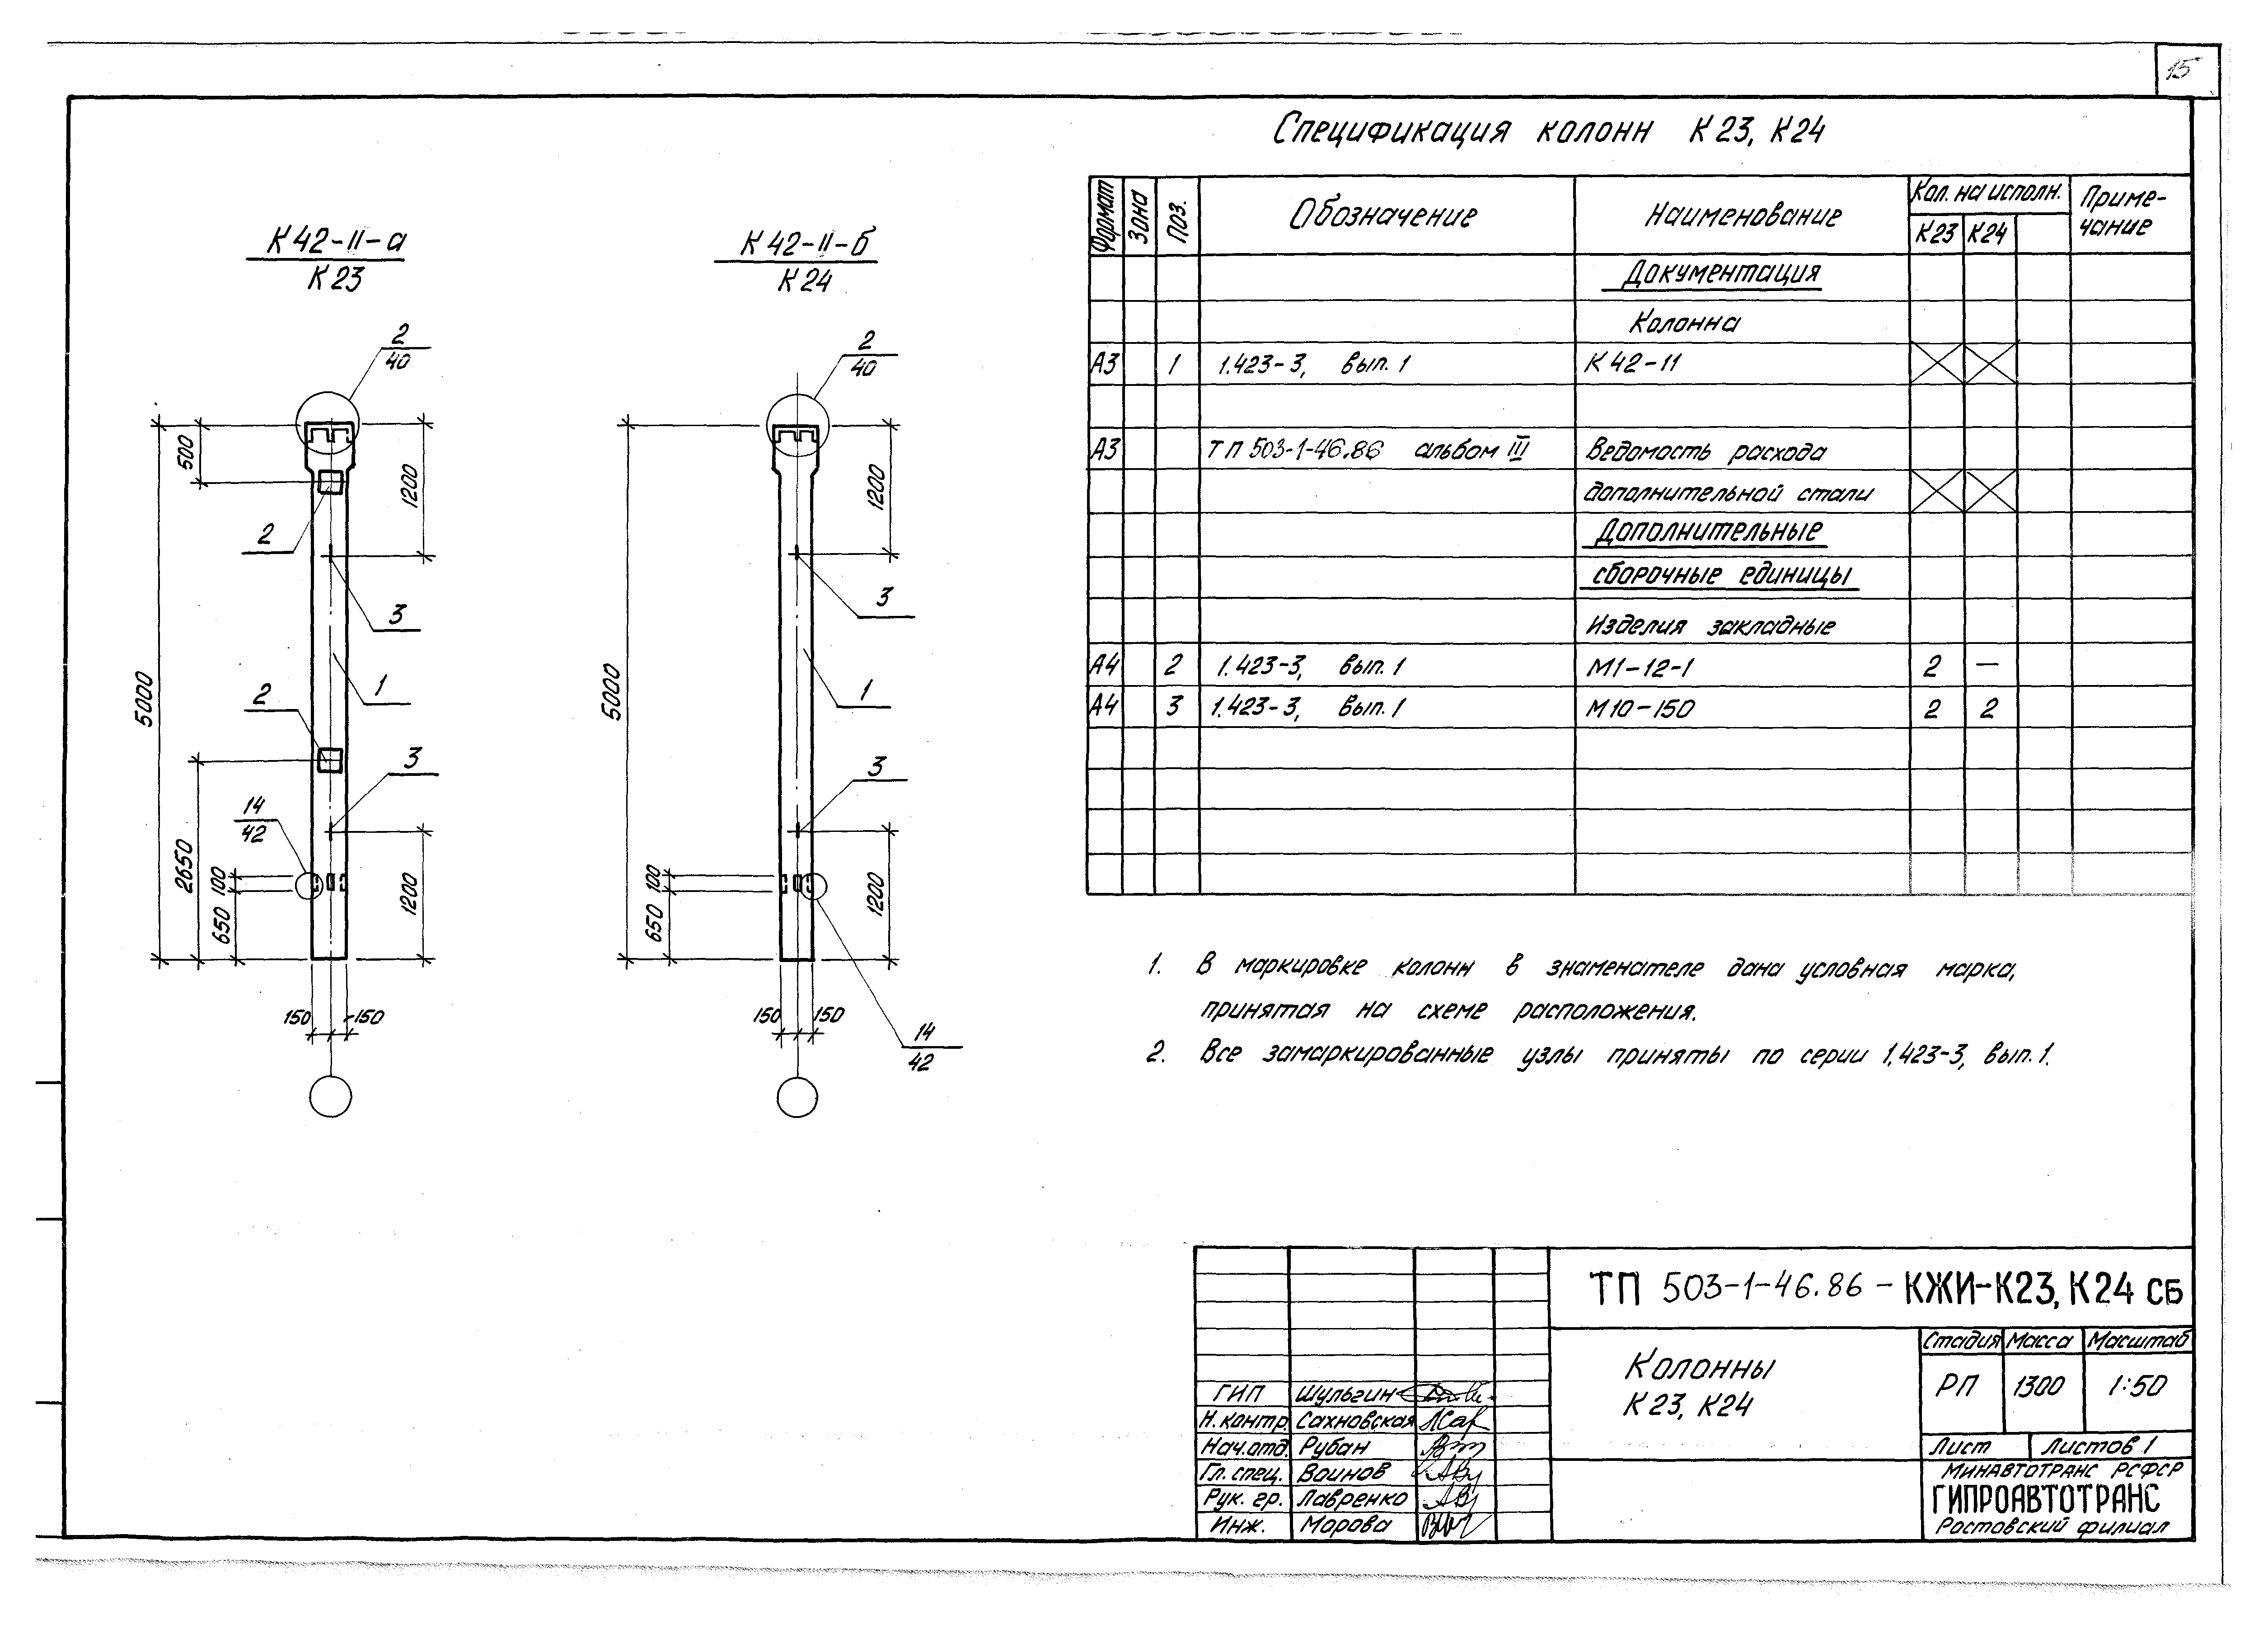 15
Спецификация колонн К23, К24
Формат Зона Поз. Обозначение Наименование Кол. на исполн. Приме-
чание
К23 К24
Документация
Колонна
А3 1 1.423-3, вып. 1 К42-11
А3 ТП 503-1-46.86 альбом III Ведомость расхода
дополнительной стали
Дополнительные
сборочные единицы
Изделия закладные
А4 2 1.423-3, вып. 1 М1-12-1 2 —
А4 3 1.423-3, вып. 1 М10-150 2 2
К42-II-а
К23
2
40
500
1200
2
3
5000
1
2
3
14
42
2650
100
650
1200
150 150
К42-II-б
К24
2
40
1200
3
5000
1
3
100
650
1200
150 150
14
42
1. В маркировке колонн в знаменателе дана условная марка,
принятая на схеме расположения.
2. Все замаркированные узлы приняты по серии 1.423-3, вып. 1.
ТП 503-1-46.86 - КЖИ-К23, К24 СБ
Колонны
К23, К24
Стадия Масса Масштаб
РП 1300 1:50
Лист Листов 1
МИНАВТОТРАНС РСФСР
ГИПРОАВТОТРАНС
Ростовский филиал
ГИП Шульгин
Н. контр. Сахновская
Нач. отд. Рубан
Гл. спец. Воинов
Рук. гр. Лавренко
Инж. Морова